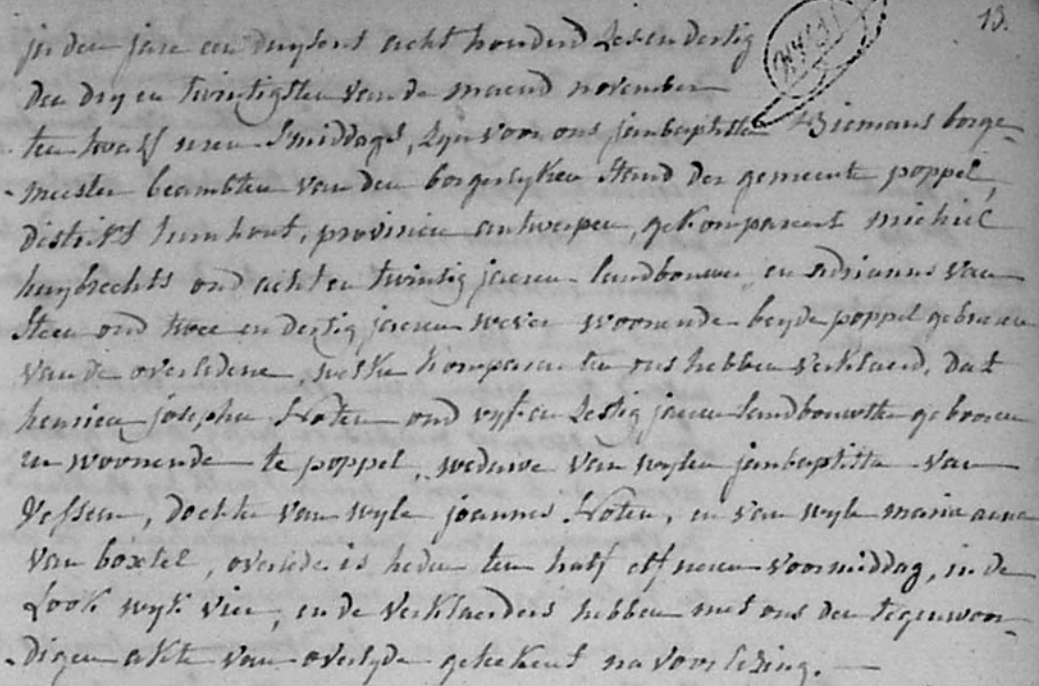 13.
in den jare een duysent acht honderd Zesendertig
den dry en twintigsten van de maend november
ten twalf uren Smiddags, Zyn voor ons janbaptista Biemans borge-
meester beambten van den borgerlyken Stand der gemeente poppel,
distrikt turnhout, provincie antwerpen, gekompareert michiel
huybrechts oud acht en twintig jaeren landbouwer en adrianus van
Steen oud twee en dertig jaeren wever woonende beyde poppel gebueren
van de overledene welke komparanten ons hebben verklaerd, dat
henrica josepha Noten oud vyf en Zestig jaeren landbouwster gebooren
en woonende te poppel, weduwe van wylen janbaptista van
, dochter van wyle joannes Noten, en van wyle maria anna
van boxtel, overlede is heden ten half elf uren voormiddag, in de
Look wyk vier, en de verklaerders hebben met ons den tegenwoor-
digen akte van overlyde geteekent na voorlezing.